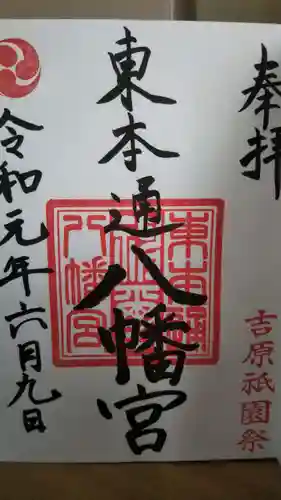 奉拝
吉原祇園祭
東本通八幡宮
東本通
八幡宮
令和元年六月九日